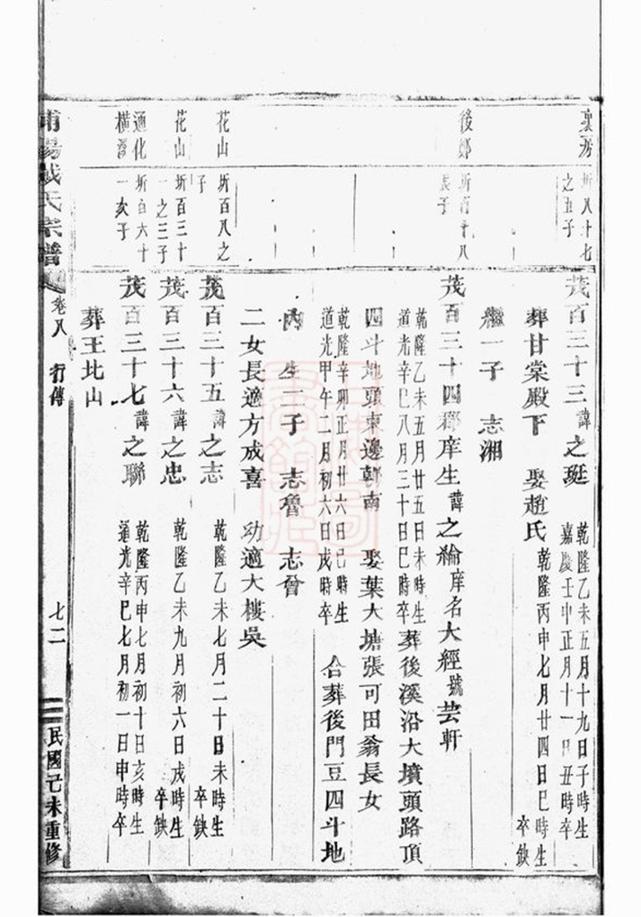 裏房
圻八十七
之五子
茂百三十三諱之珽
乾隆乙未五月十九日子時生
嘉慶壬申正月十一日丑時卒
葬甘棠殿下 娶趙氏
乾隆丙申七月廿四日巳時生
卒缺
繼一子 志湘
後鄭
圻百十八
長子
茂百三十四郡庠生諱之綸庠名大經號芸軒
乾隆乙未五月廿五日未時生
道光辛巳八月三十日巳時卒
葬後溪沿大墳頭路頂
四斗地頭東邊朝南 娶葉大塘張可田翁長女
乾隆辛卯正月廿六日巳時生
道光甲午二月初六日戌時卒
合葬後門豆四斗地
內 生二子 志魯 志晉
二女長適方成喜 幼適大樓吳
花山
圻百八之
子
茂百三十五諱之志
乾隆乙未七月二十日未時生
卒缺
花山
圻百三十
一之三子
茂百三十六諱之忠
乾隆乙未九月初六日戌時生
卒缺
通化
橫溪
圻百六十
一次子
茂百三十七諱之聯
乾隆丙申七月初十日亥時生
道光辛巳七月初一日申時卒
葬王北山
氏宗譜
卷八 行傳
七二
民國己未重修